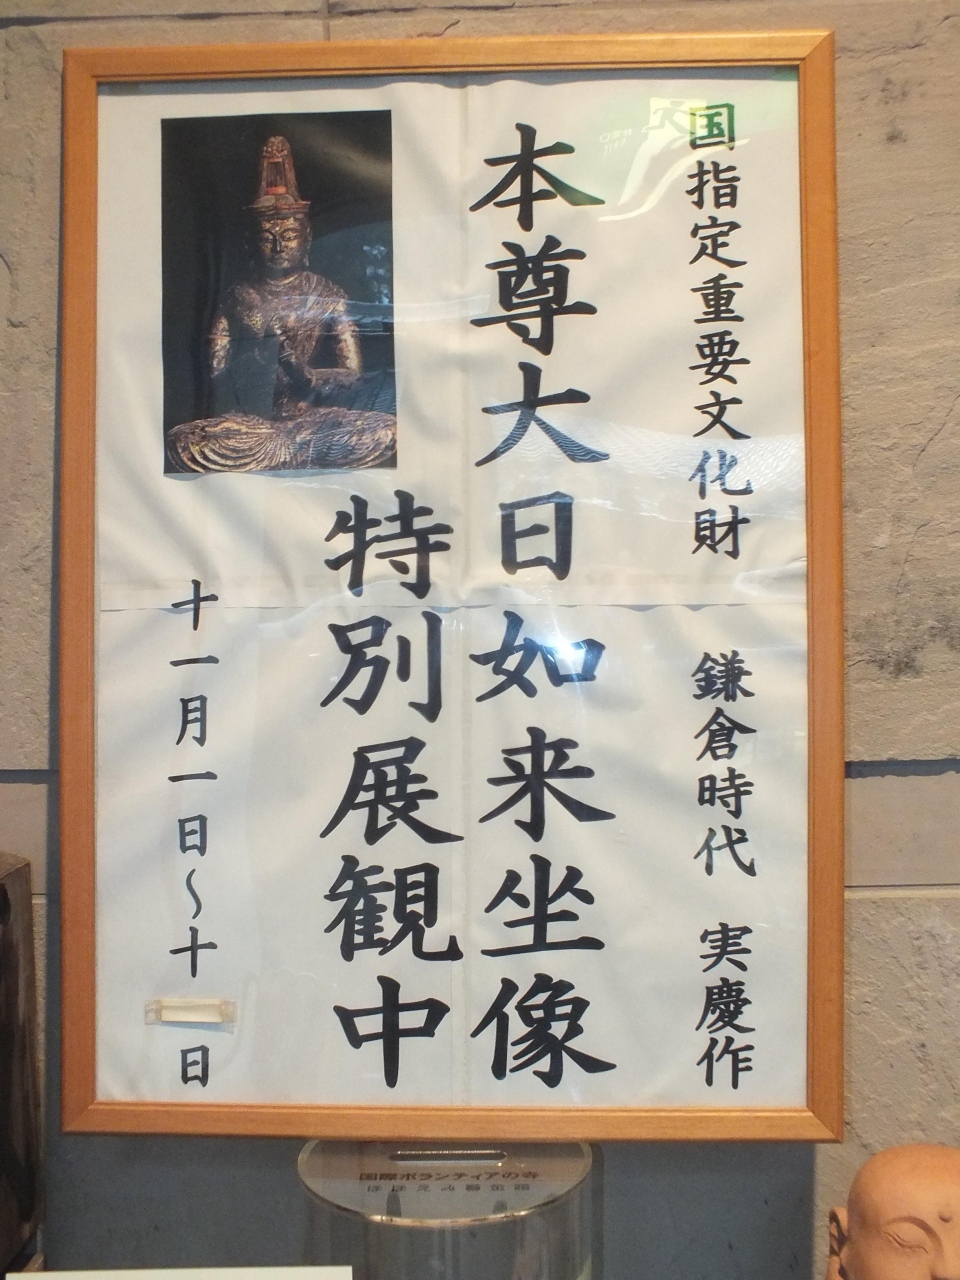 国指定重要文化財 鎌倉時代 実慶作
本尊大日如来坐像
特別展観中
十一月一日〜十 日
国際ボランティアの寺